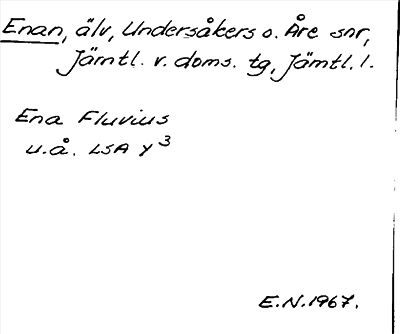 Enan, älv, Undersåkers o. Åre snr,
Jämtl. v. doms. tg, Jämtl. l.
Ena Fluvius
u.å. LSA Y3
E.N.1967.